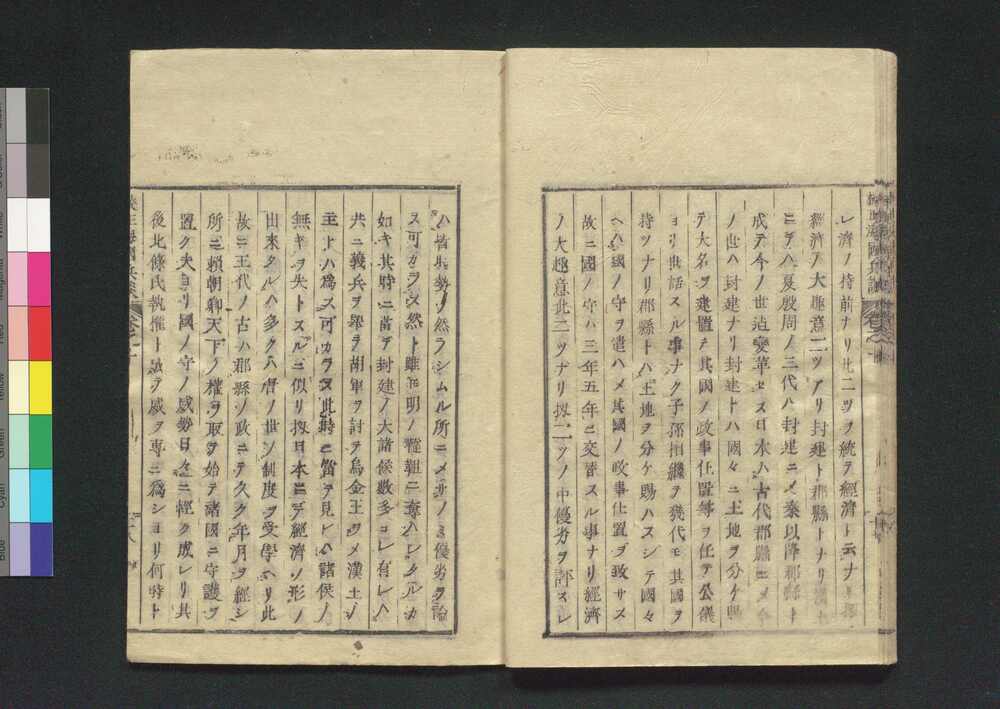 レ濟ノ持前ナリ此二ツヲ統テ經濟ト云ナリ
經濟ノ大趣意二ツアリ封建ト郡縣トナリ漢土
ニテハ夏殷周ノ三代ハ封建ニメ秦以降郡縣ト
成テ今ノ世迠變革セス日本ハ古代郡縣ニメ今
ノ世ハ封建ナリ封建トハ國々ニ土地ヲ分ケ與
テ大名ヲ建置テ其國ノ政事仕置等ヲ任テ公儀
ヨリ世話スル事ナク子孫相繼テ幾代モ其國ヲ
持ツナリ郡縣トハ土地ヲ分ケ賜ハスシテ國々
ヘハ國ノ守ヲ遣ハメ其國ノ政事仕置ヲ致サス
故ニ國ノ守ハ三年五年ニ交替スル事ナリ經濟
ノ大趣意此二ツナリ扨二ツノ中優劣ヲ評スレ
ハ皆其勢ノ然ラシムル所ニメサノミ優劣ヲ論
ス可カラス然ト雖𪜈明ノ韃靼ニ奪ハレタルカ
如キ其時ニ當テ封建ノ大諸候數多コレ有レハ
共ニ義兵ヲ舉テ胡軍ヲ討テ烏金王ヲメ漢土ノ
主トハ爲ス可カラス此時ニ當テ見レハ諸候ノ
無キヲ失トスルニ似リ扨日本ニテ經濟ノ形ノ
由來タルハ多クハ唐ノ世ノ制度ヲ受學ヘリ此
故ニ王代ノ古ハ郡縣ノ政ニテ久ク年月ヲ經シ
所ニ頼朝卿天下ノ權ヲ取ヲ始テ諸國ニ守護ヲ
置ク夫ヨリ國ノ守ノ威勢日々ニ輕ク成レリ其
後北條氏執權ト號テ威ヲ專ニ爲ショリ何時ト